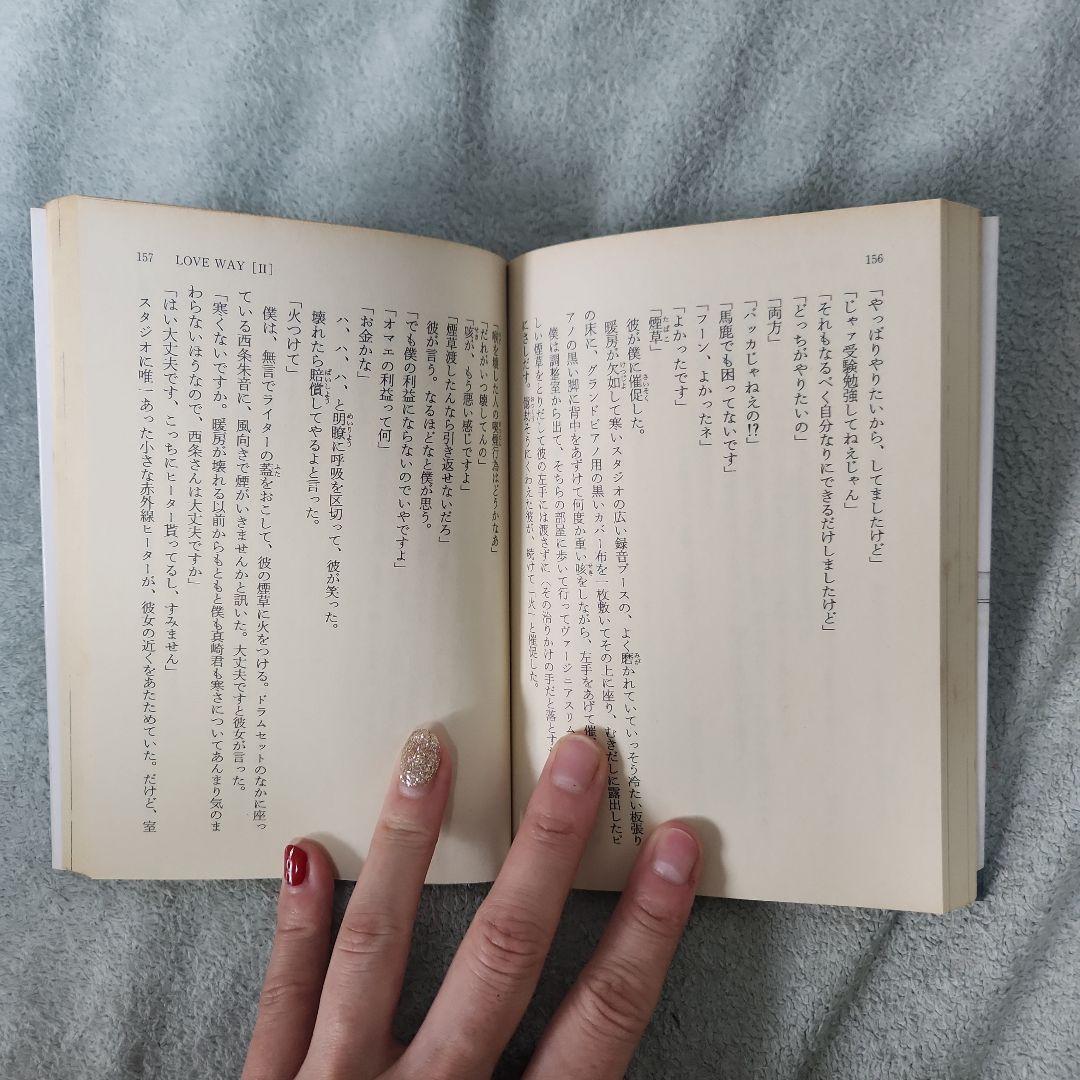 156
「やっぱりやりたいから、してましたけど」
「じゃァ受験勉強してねえじゃん」
「それもなるべく自分なりにできるだけしましたけど」
「どっちがやりたいの」
「両方」
「バッカじゃねえの!?」
「馬鹿でも困ってないです」
「フーン、よかったネ」
「よかったです」
「煙草」
彼が僕に催促した。
暖房が欠如して寒いスタジオの広い録音ブースの、よく磨かれていていっそう冷たい板張り
の床に、グランドピアノ用の黒いカバー布を一枚敷いてその上に座り、むきだしに露出したピ
アノの黒い脚に背中をあずけて何度か重い咳をしながら、左手をあげて催
僕は調整室から出て、そちらの部屋に歩いて行ってヴァージニアスリム
しい煙草をとりだして彼の左手には渡さずに(その治りかけの手だと落とす
にさしだす。 にくわえた彼が、続けて「火」と催促した。
157 LOVE WAY [II]
を壊した人の喫煙行為はどうかなあ」
「だれがいつ壊してんの」
「咳が、もう悪い感じですよ」
「煙草渡したんなら引き返せないだろ」
彼が言う。なるほどなと僕が思う。
「でも僕の利益にならないのでいやですよ」
「オマエの利益って何」
「お金かな」
ハ、ハ、ハ、と明瞭に呼吸を区切って、彼が笑った。
壊れたら賠償してやるよと言った。
「火つけて」
僕は、無言でライターの蓋をおこして、彼の煙草に火をつける。ドラムセットのなかに座っ
ている西条朱音に、風向きで煙がいきませんかと訊いた。大丈夫ですと彼女が言った。
「寒くないですか。暖房が壊れる以前からもともと僕も真崎君も寒さについてあんまり気のま
わらないほうなので、西条さんは大丈夫ですか」
「はい大丈夫です、こっちにヒーター貰ってるし、すみません」
スタジオに唯一あった小さな赤外線ヒーターが、彼女の近くをあたためていた。だけど、室